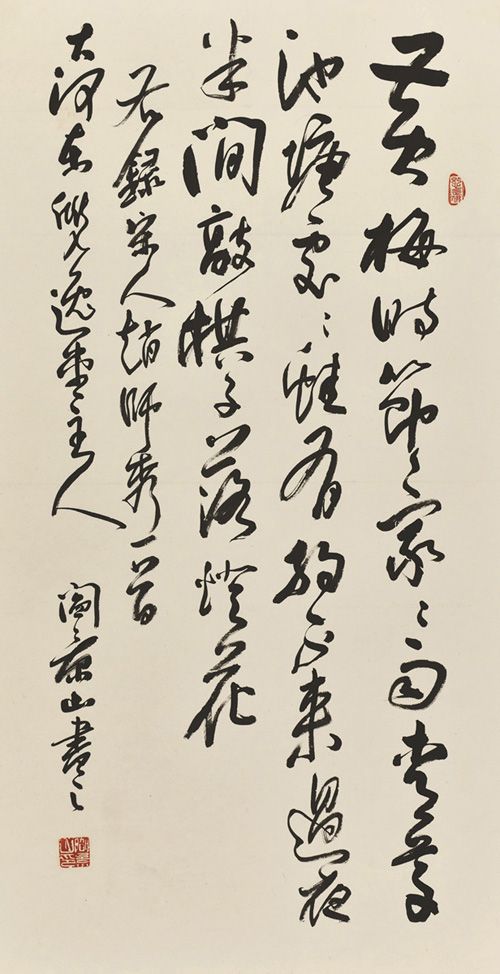 黃梅時節家〻雨青草
池塘處〻蛙有約不來過夜
半間敲棋子落燈花
右錄宋人趙師秀一首
大河東逸堂主人
閻山書之